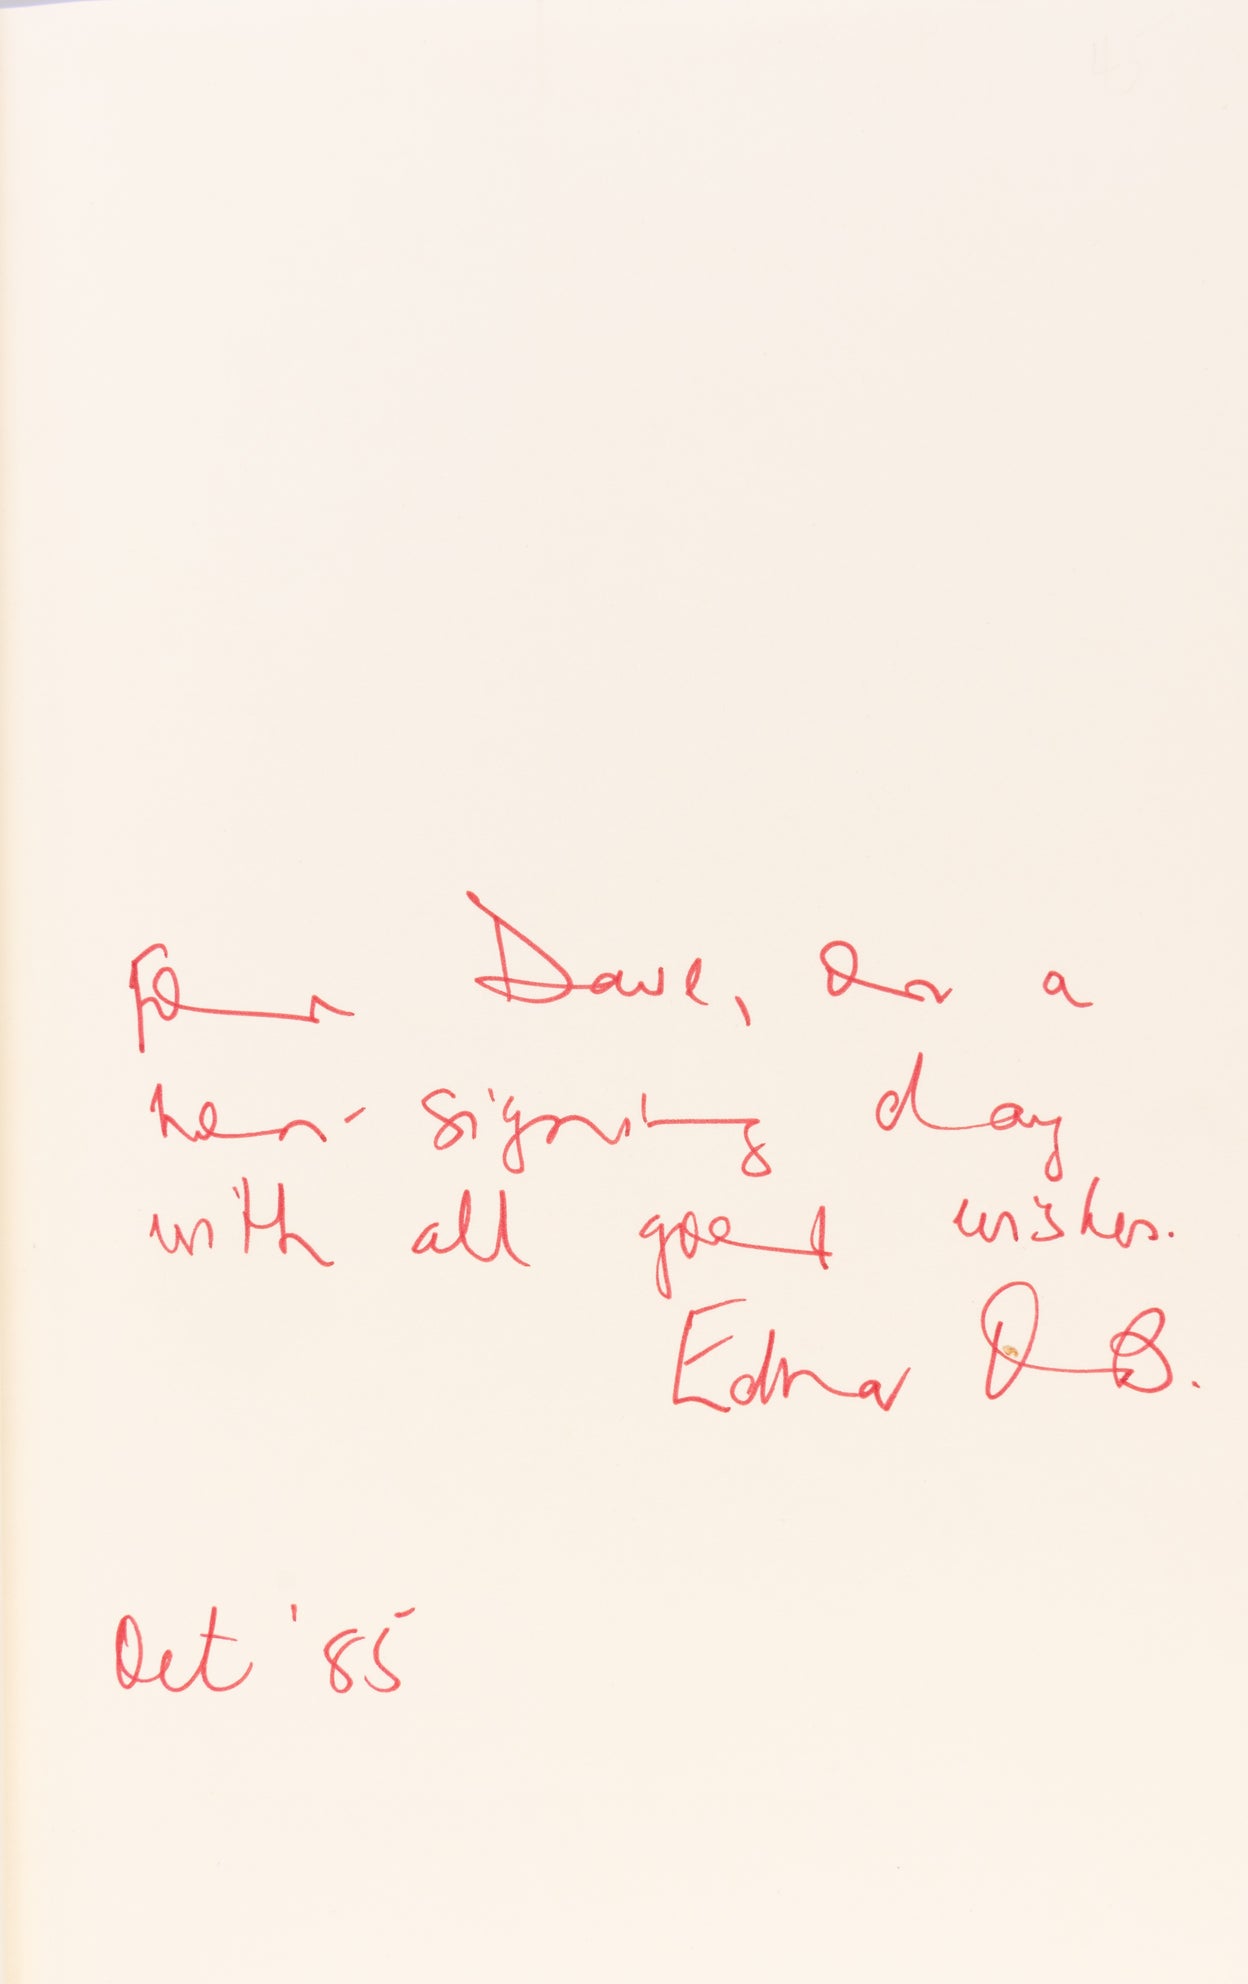 For Dave, on a
non-signing day
with all good wishes.
Edna O B.
Oct '85